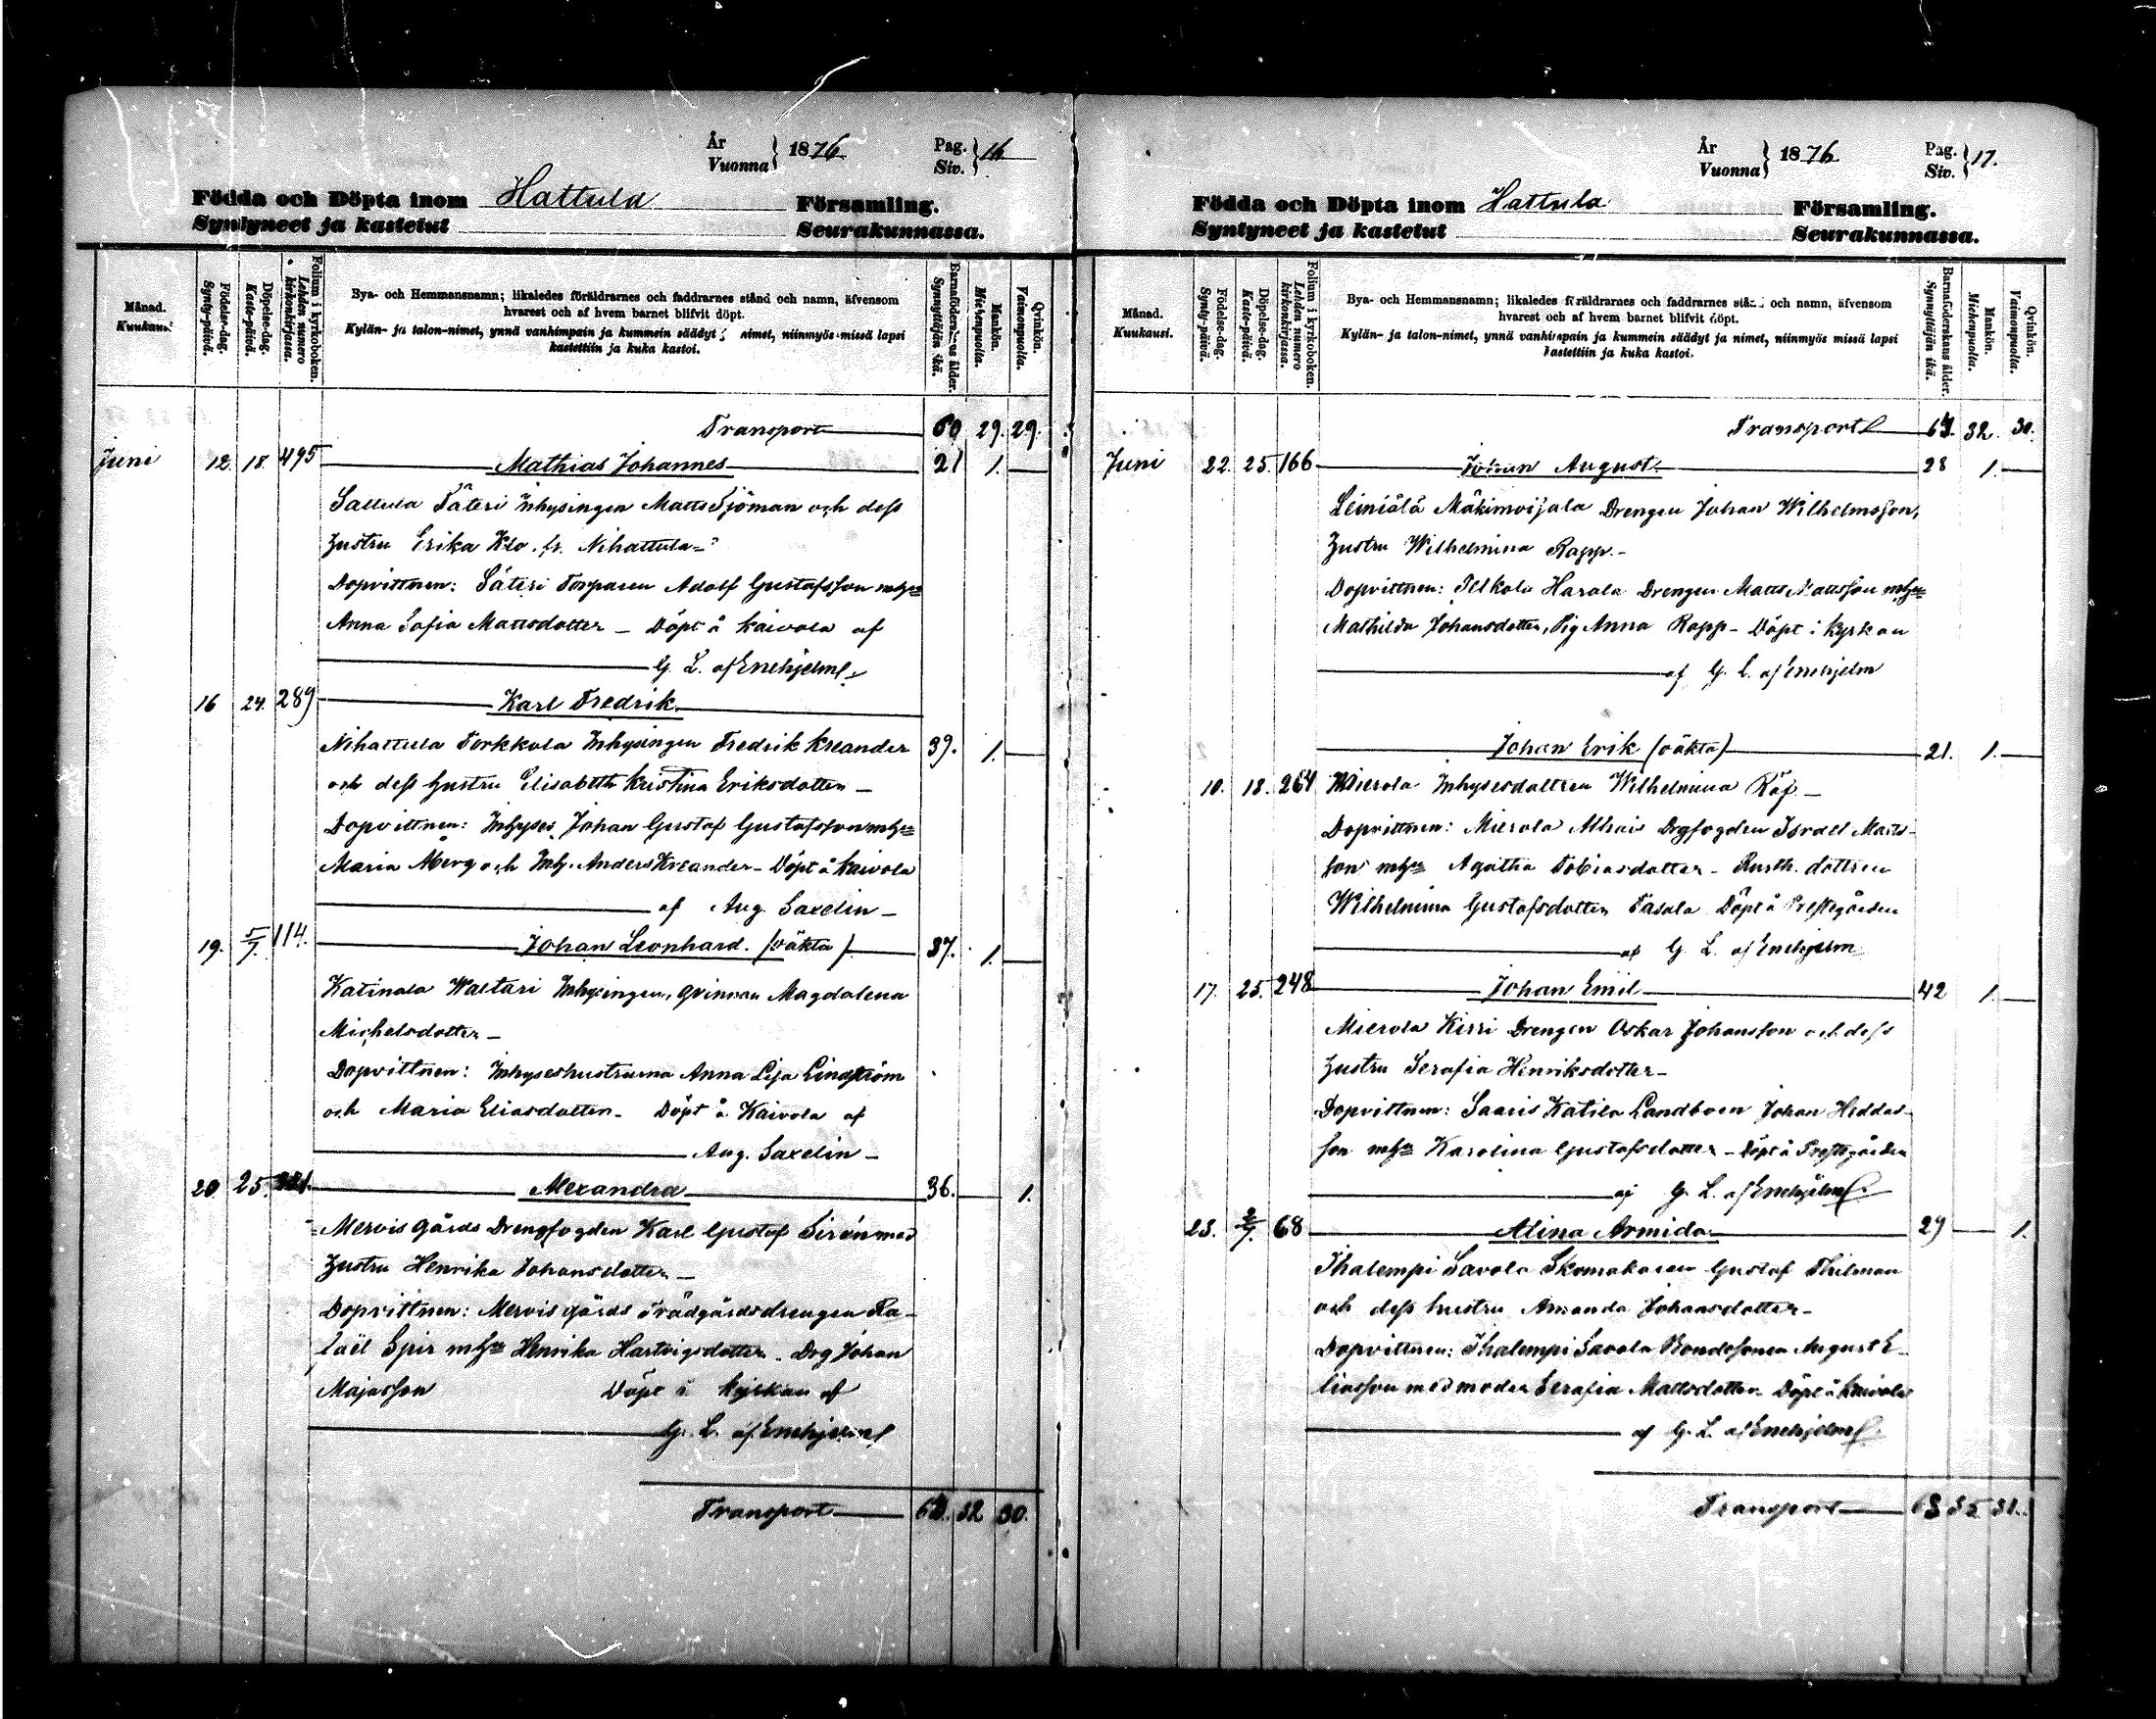 År
Vuonna } 1876
Pag.
Siv. } 16
Födda och Döpta inom Hattula Församling.
Syntyneet ja kastetut Seurakunnassa.
Månad.
Kuukausi.
Födelse-dag.
Synty-päivä.
Döpelse-dag.
Kaste-päivä.
Folium i kyrkoboken.
Lehden numero
kirkonkirjassa.
Bya- och Hemmansnamn; likaledes föräldrarnes och faddrarnes stånd och namn, äfvensom
hvarest och af hvem barnet blifvit döpt.
Kylän- ja talon-nimet, ynnä vanhimpain ja kummein säädyt nimet, niinmyös missä lapsi
kastettiin ja kuka kastoi.
Barnaföderskans ålder.
Synnyttäjän ikä.
Mankön.
Miehenpuolta.
Qvinkön.
Vaimonpuolta.
Transport 60 29. 29.
Juni 12. 18. 495 Mathias Johannes 21 1.
Sattula Säteri Inhysingen Matts Sjöman och dess
hustru Erika Klo. fr. Nihattula
Dopvittnen: Säteri Torparen Adolf Gustafsson mhu
Anna Sofia Mattsdotter – Döpt å Kaivola af
G. L. af Enehjelm
16 24. 289 Karl Fredrik
Nihattula Torkkola Inhysingen Fredrik Kreander 39. 1.
och dess hustru Elisabeth Kristina Eriksdotter –
Dopvittnen: Inhyses Johan Gustaf Gustafsson mhu
Maria Åberg och Inh. Anders Kreander – Döpt å Kaivola
af Aug. Saxelin –
19. 5/7. 114. Johan Leonhard. (oäkta) 37. 1.
Katinala Waltari Inhysingen, qvinnan Magdalena
Michelsdotter –
Dopvittnen: Inhyseshustrurna Anna Lisa Lindström
och Maria Eliasdotter – Döpt å Kaivola af
Aug. Saxelin –
20 25. Alexandra 36. 1.
Mervis gårds Drengfogden Karl Gustaf Sirén med
hustru Henrika Johansdotter –
Dopvittnen: Mervis gårds Trädgårdsdrengen Ra-
faël Spir mhu Henrika Hartvigsdotter. Drg Johan
Majasson Döpt i kyrkan af
G. L. af Enehjelm
Transport 62. 32 30.
År
Vuonna } 1876
Pag.
Siv. } 17.
Födda och Döpta inom Hattula Församling.
Syntyneet ja kastetut Seurakunnassa.
Månad.
Kuukausi.
Födelse-dag.
Synty-päivä.
Döpelse-dag.
Kaste-päivä.
Folium i kyrkoboken.
Lehden numero
kirkonkirjassa.
Bya- och Hemmansnamn; likaledes föräldrarnes och faddrarnes stånd och namn, äfvensom
hvarest och af hvem barnet blifvit döpt.
Kylän- ja talon-nimet, ynnä vanhimpain ja kummein säädyt ja nimet, niinmyös missä lapsi
kastettiin ja kuka kastoi.
Barnaföderskans ålder.
Synnyttäjän ikä.
Mankön.
Miehenpuolta.
Qvinkön.
Vaimonpuolta.
Transport 32. 30.
Juni 22. 25. 166 Johan August 28 1.
Leiniälä Mäkimoijala Drengen Johan Wilhelmsson,
hustru Wilhelmina Rapp. –
Dopvittnen: Pelkola Harala Drengen Matts Mattsson mhu
Mathilda Johansdotter, Pig Anna Rapp – Döpt i kyrkan
af G. L. af Enehjelm
Johan Erik (oäkta) 21. 1.
10. 18. 264 Mierola Inhysesdottren Wilhelmina Räf –
Dopvittnen: Mierola Alhais Drgfogden Israel Matts-
son mhu Agatha Tobiasdotter – Rusth. dottren
Wilhelmina Gustafsdotter Tasala Döpt å Prestegården
af G. L. af Enehjelm
17. 25. 248 Johan Emil 42 1.
Mierola Kirri Drengen Oskar Johansson och dess
hustru Serafia Henriksdotter –
Dopvittnen: Saaris Katila Landboen Johan Heddas-
son mhu Karolina Gustafsdotter – Döpt å Prestegården
af G. L. af Enehjelm
23. 2/7. 68 Alina Armida 29 1.
Ihalempi Savola Skomakaren Gustaf Thilman
och dess hustru Amanda Johansdotter –
Dopvittnen: Ihalempi Savola Bondesonen August E-
liasson med moder Serafia Mattsdotter Döpt å Kaivola
af G. L. af Enehjelm
Transport 35 31.